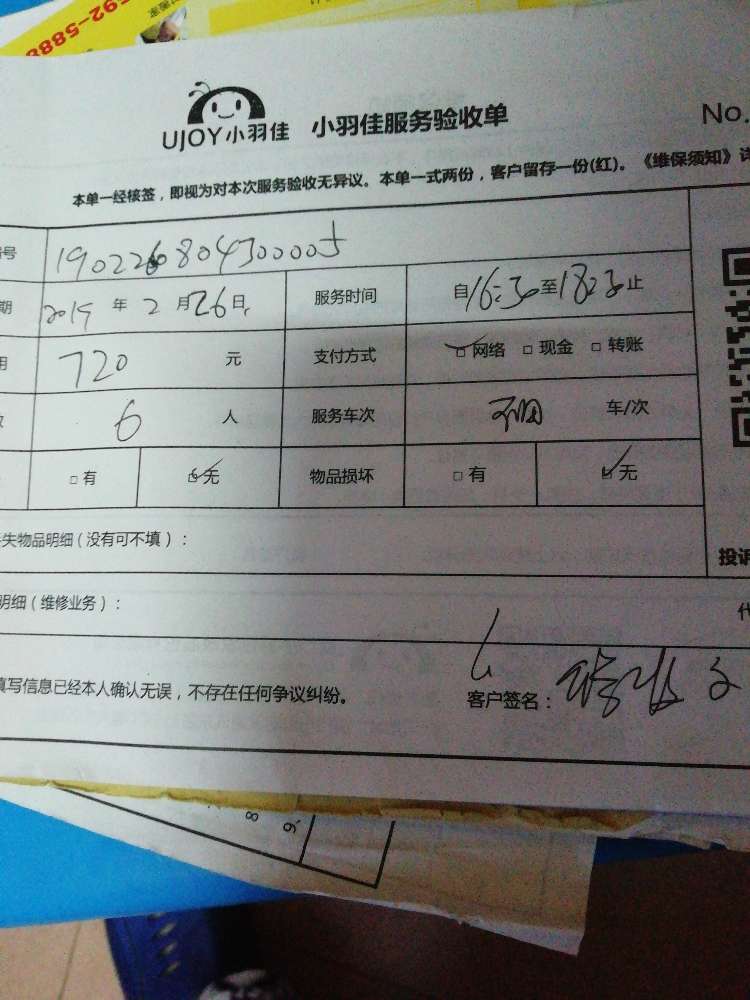 592-5888
UJOY小羽佳 小羽佳服务验收单 No.
本单一经核签，即视为对本次服务验收无异议。本单一式两份，客户留存一份(红)。《维保须知》详
号 190226804300005
期 2019 年 2 月 26 日 服务时间 自 16:30 至 18:30 止
用 720 元 支付方式 网络 现金 转账
6 人 服务车次 车/次
有 无 物品损坏 有 无
失物品明细（没有可不填）：
投诉
明细（维修业务）：
代
填写信息已经本人确认无误，不存在任何争议纠纷。 客户签名：
8
9